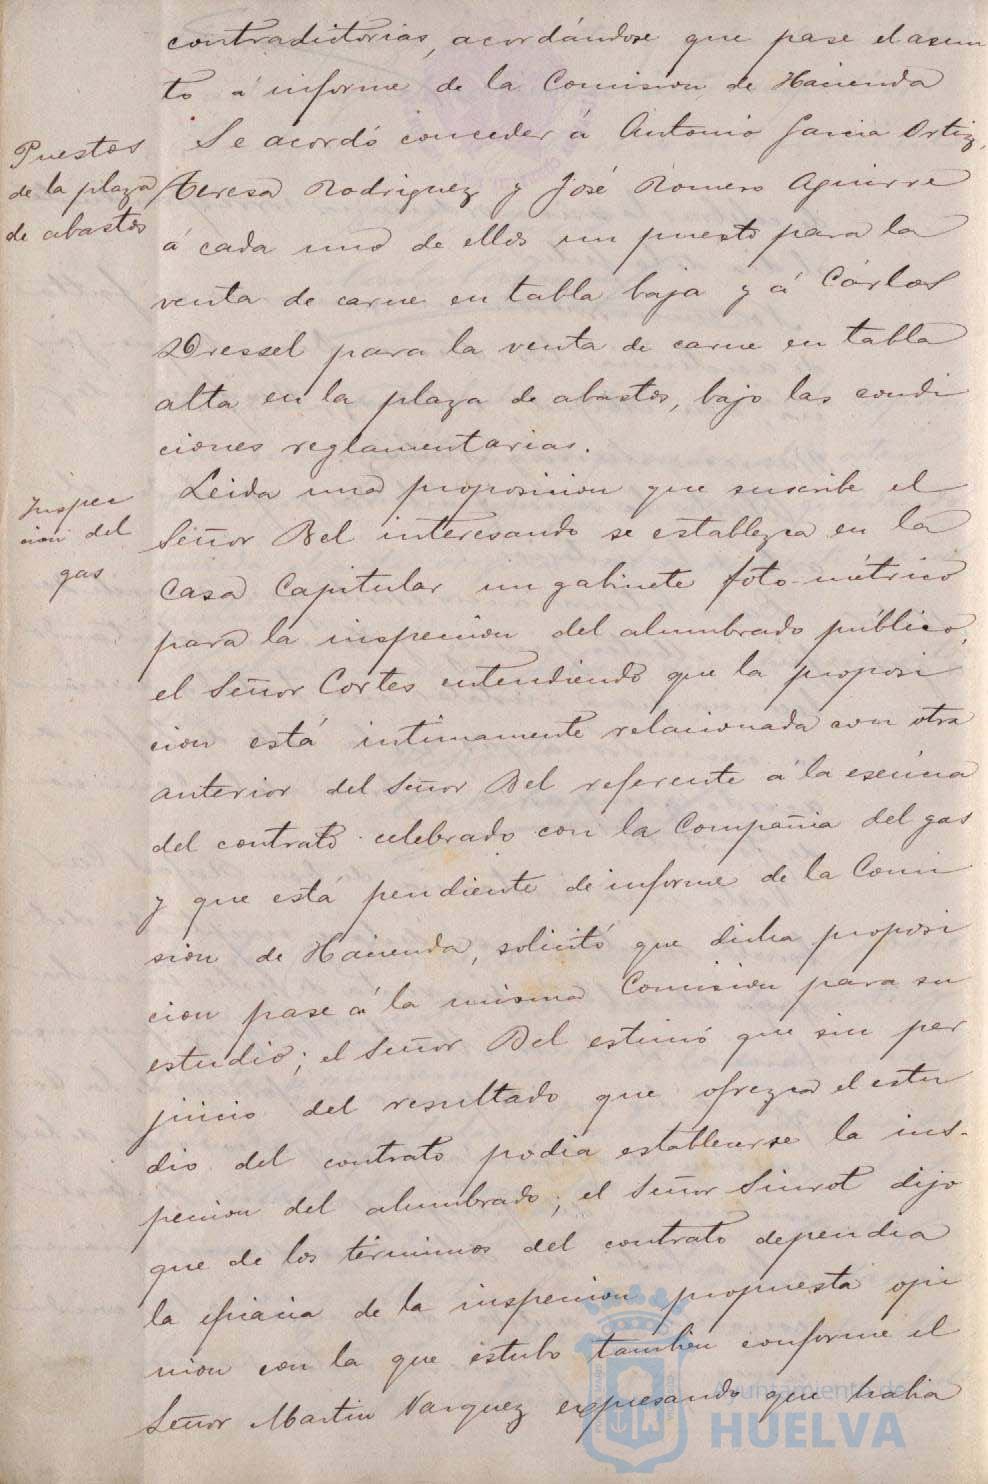 contradictorias, acordándose que pase el asun
to á informe de la Comision de Hacienda
Puestos
de la plaza
de abastos
Se acordó conceder á Antonio Garcia Ortiz,
Teresa Rodriguez y José Romero Aguirre
á cada uno de ellos un puesto para la
venta de carne en tabla baja y á Cárlos
Dressel para la venta de carne en tabla
alta en la plaza de abastos, bajo las condi
ciones reglamentarias.
Inspec
cion del
gas
Leida una proposicion que suscribe el
Señor Bel interesando se establezca en la
Casa Capitular un gabinete foto-métrico
para la inspeccion del alumbrado público,
el Señor Cortes entendiendo que la proposi
cion está intimamente relacionada con otra
anterior del Señor Bel referente á la esencia
del contrato celebrado con la Compañia del gas
y que está pendiente de informe de la Comi
sion de Hacienda, solicitó que dicha proposi
cion pase á la misma Comision para su
estudio; el Señor Bel estimó que sin per
juicio del resultado que ofrezca el estu
dio del contrato podia establecerse la ins-
peccion del alumbrado; el Señor Sinrot dijo
que de los términos del contrato dependia
la eficacia de la inspeccion propuesta opi
nion con la que estubo tambien conforme el
Señor Martin Vazquez expresando que habia
Ayuntamiento de
HUELVA